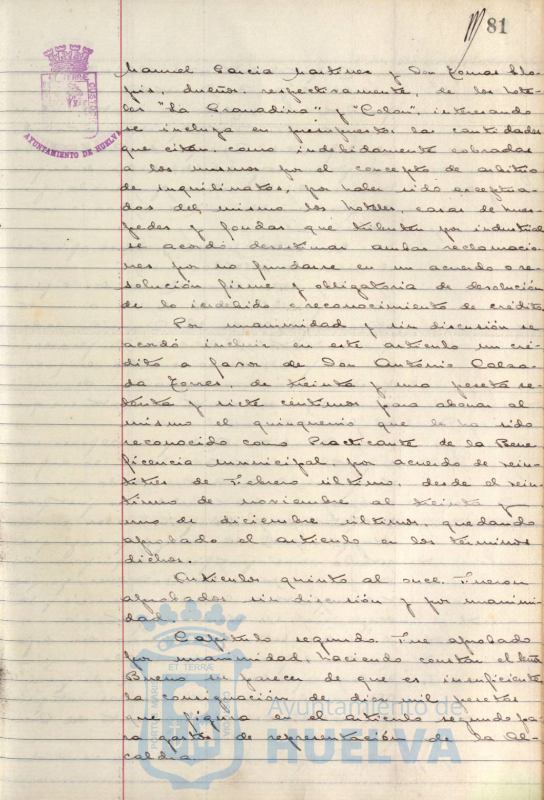 81
Manuel García Martínez y Don Tomás Llo-
pis, dueños, respectivamente, de los hote-
les "La Granadina" y "Colon", interesando
se incluya en presupuestos las cantidades
que citan, como indebidamente cobradas
a los mismos por el concepto de arbitrio
de inquilinatos, por haber sido exceptua-
dos del mismo los hoteles, casas de hues-
pedes y fondas que tributen por industrial
se acordó desestimar ambas reclamacio-
nes por no fundarse en un acuerdo o re-
solución firme y obligatoria de devolución
de lo indebido o reconocimiento de crédito.
Por unanimidad y sin discusión se
acordó incluir en este artículo un cré-
dito a favor de Don Antonio Calza-
da Torres, de treinta y una peseta se-
tenta y siete centimos para abonar al
mismo el quinquenio que le ha sido
reconocido como Practicante de la Bene
ficencia municipal, por acuerdo de vein-
titres de Febrero último, desde el vein-
tiuno de noviembre al treinta y
uno de diciembre últimos, quedando
aprobado el artículo en los términos
dichos.
Artículos quinto al once. Fueron
aprobados sin discusión y por unanimi-
dad.
Capítulo segundo. Fue aprobado
por unanimidad, haciendo constar el Señor
Bueno su parecer de que es insuficiente
la consignación de diez mil pesetas
que figura en el artículo segundo pa-
ra gastos de representación de la Al-
caldía.
AYUNTAMIENTO DE HUELVA
Ayuntamiento de
HUELVA
PORTUS MARIS ET TERRAE CUSTODIA